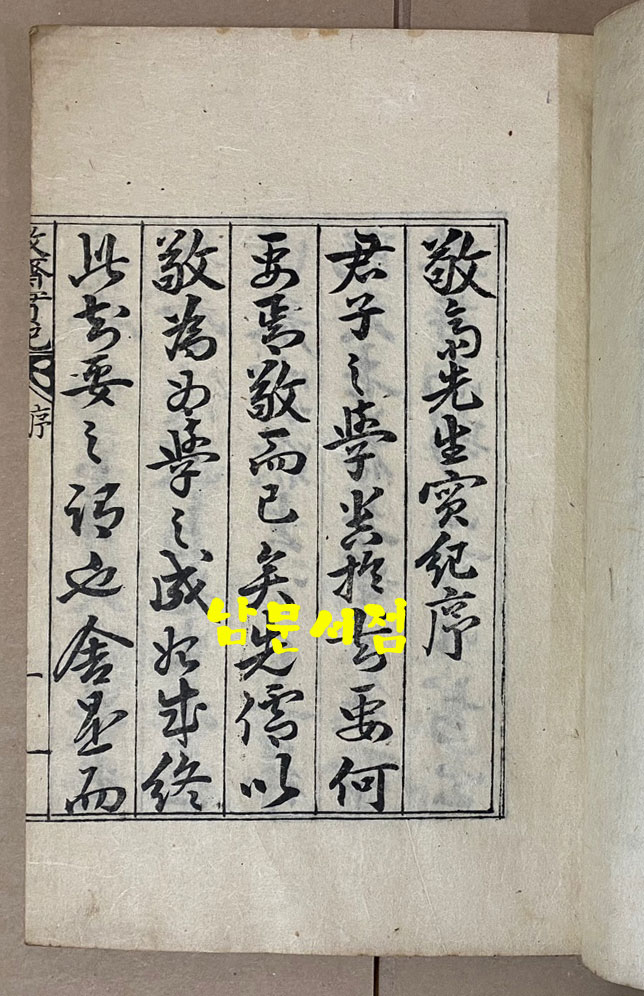 敬齋先生實紀序
君子之學貴於知要何
要焉敬而已矣先儒以
敬為為學之成始成終
此知要之謂也舍是而
敬齋實紀 序 一
남문서점